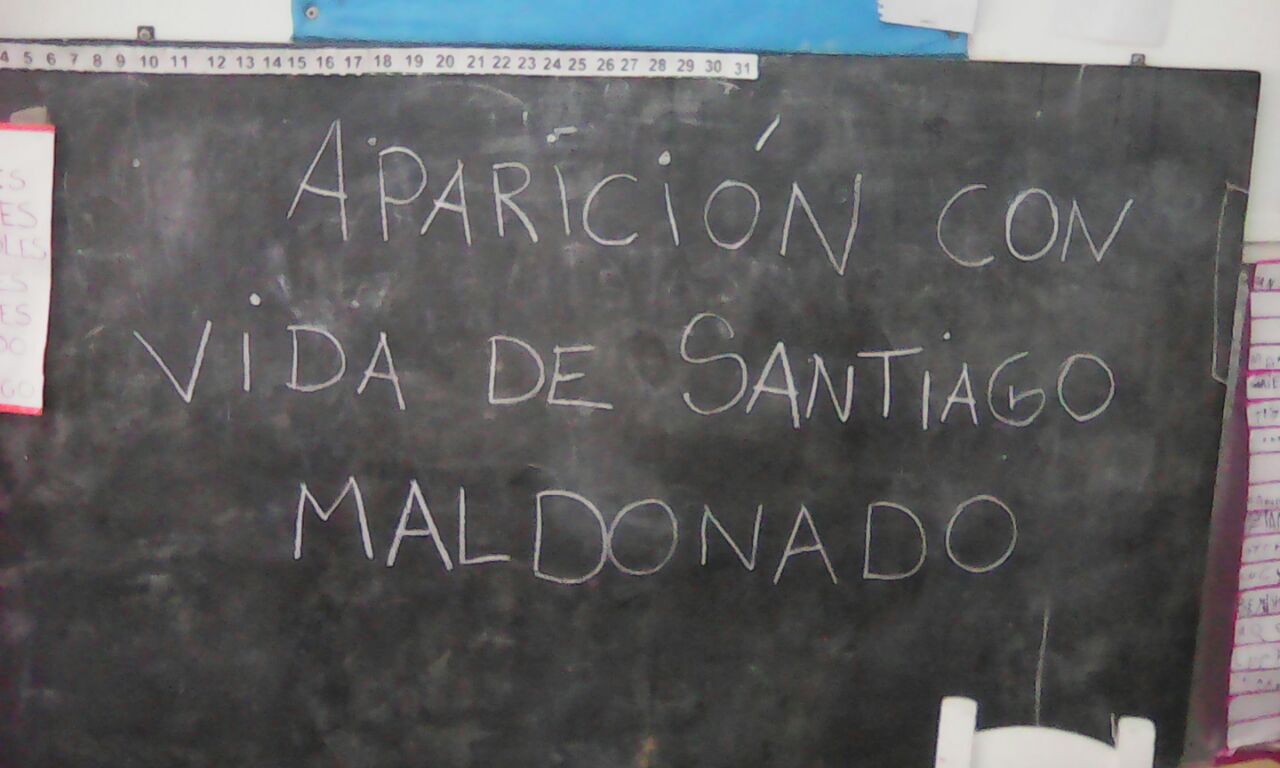 4 5 6 7 8 9 10 11 12 13 14 15 16 17 18 19 20 21 22 23 24 25 26 27 28 29 30 31
APARICIÓN CON
VIDA DE SANTIAGO
MALDONADO